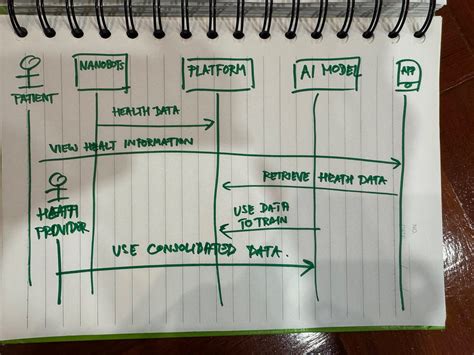 NANOBOTS
PLATFORM
AI MODEL
APP
PATIENT
HEALTH DATA
VIEW HEALT INFORMATION
RETRIEVE HEATH DATA
HEATH
PROVIDER
USE DATA
TO TRAIN
USE CONSOLIDATED DATA.